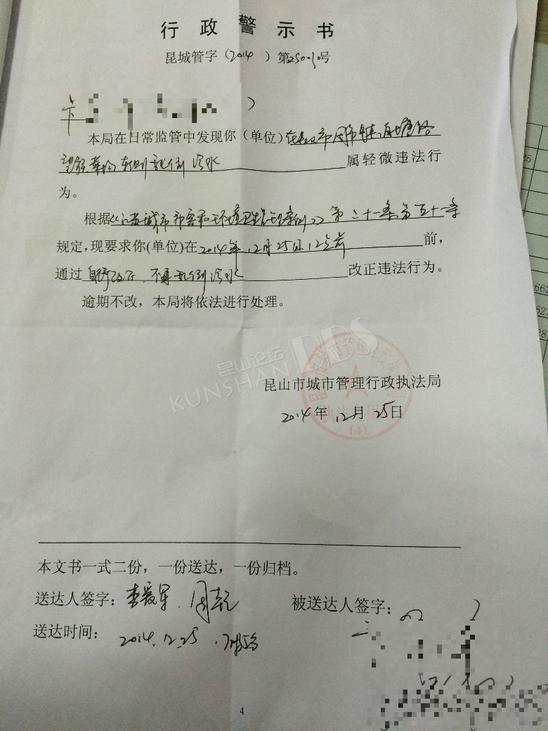 行政警示书
昆城管字（2014）第25010号
本局在日常监管中发现你（单位）在昆山市周市镇
乱倒污水 属轻微违法行
为。
根据《江苏省城市市容和环境卫生管理条例》第二十一条、第五十一条
规定，现要求你(单位)在2014年12月25日12点前 前，
通过自行改正，不再乱倒污水 改正违法行为。
逾期不改，本局将依法进行处理。
昆山论坛
KUNSHAN BBS
昆山市城市管理行政执法局
2014年12月25日
(4)
本文书一式二份，一份送达，一份归档。
送达人签字：李爱军、周
被送达人签字：
送达时间：2014.12.25
4